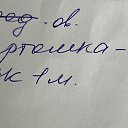 род. ов.
ртошка -
к 1 м.